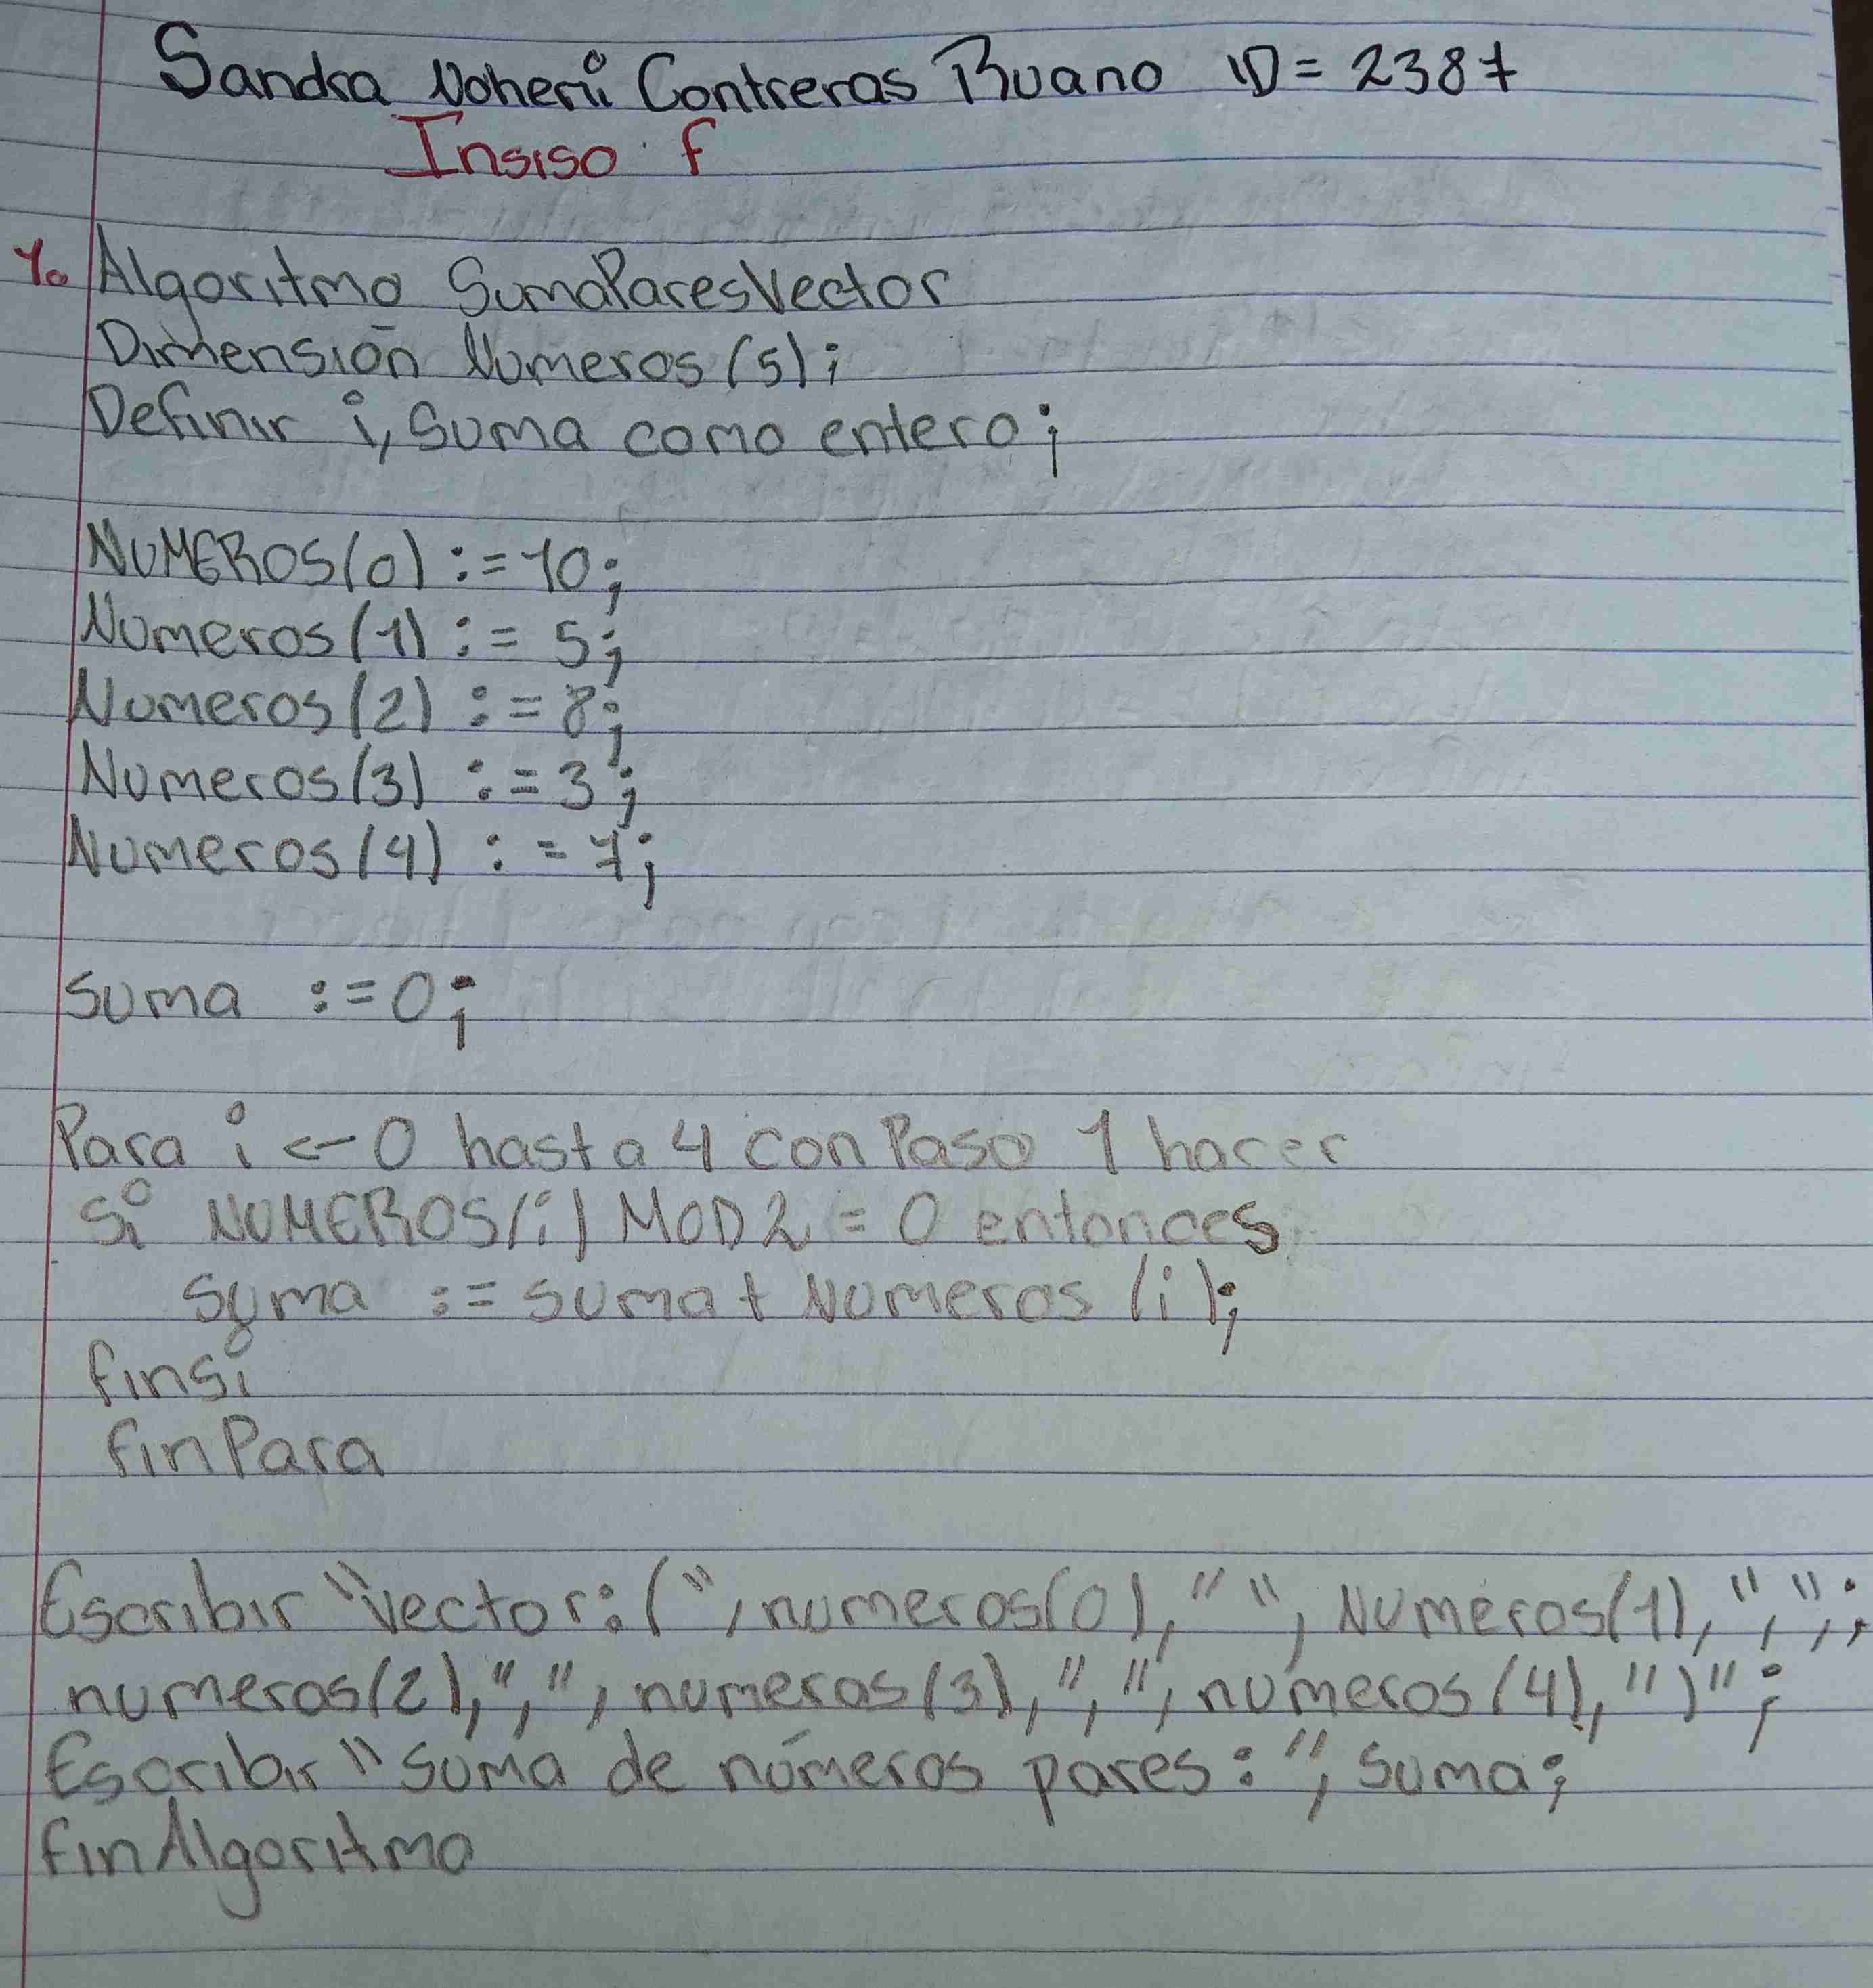 Sandra Noheri Contreras Ruano ID = 2387
Insiso f
1. Algoritmo SumaParesVector
Dimensión Numeros(5);
Definir i, Suma como entero;
NUMEROS(0) := 10;
Numeros(1) := 5;
Numeros(2) := 8;
Numeros(3) := 3;
Numeros(4) := 7;
Suma := 0;
Para i <- 0 hasta 4 con Paso 1 hacer
Si NUMEROS(i) MOD 2 = 0 entonces
Suma := suma + Numeros (i);
finsi
finPara
Escribir "Vector: (", numeros(0), " ", Numeros(1), ",",;
numeros(2), ",", numeros(3), ",", numeros(4), ")";
Escribir "Suma de números pares: ", Suma;
finAlgoritmo